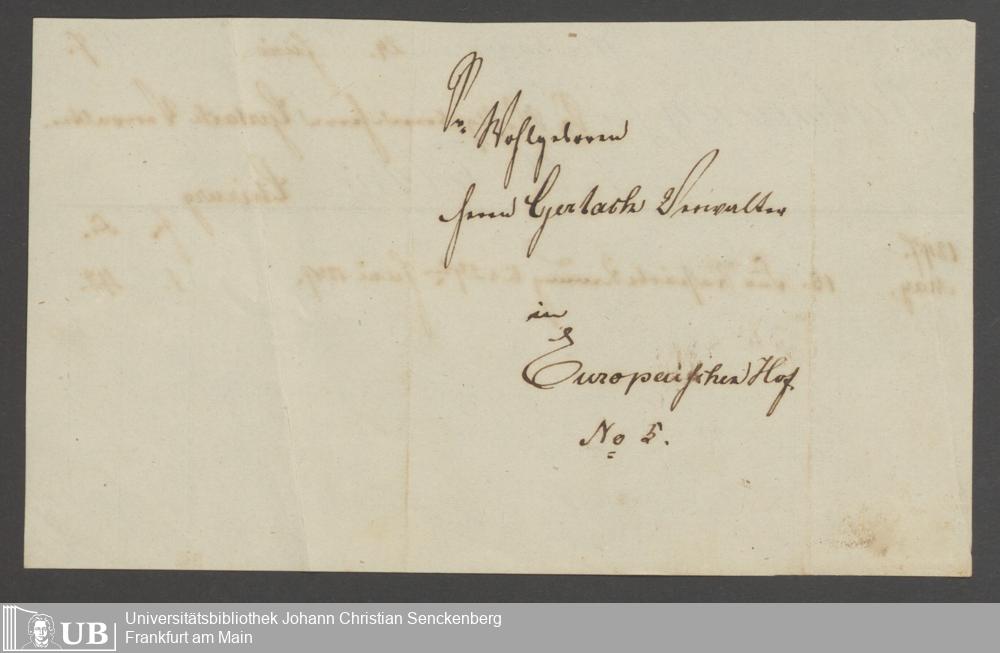 Sr. Wohlgeboren
Herrn Gerlach Verwalter
in
Europeuischen Hof.
No 5.
UB
Universitätsbibliothek Johann Christian Senckenberg
Frankfurt am Main